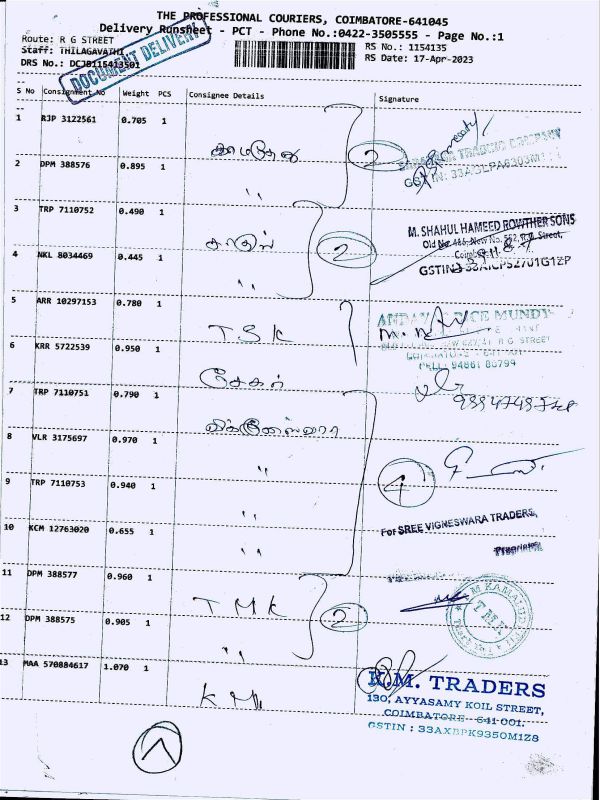 THE PROFESSIONAL COURIERS, COIMBATORE-641045
Delivery Runsheet - PCT - Phone No.:0422-3505555 - Page No.:1
Route: R G STREET
RS No.: 1154135
Staff: THILAGAVATHI
RS Date: 17-Apr-2023
DRS No.: DCJB115413501
DOCUMENT DELIVERY
S No Consignment No Weight PCS Consignee Details Signature
1 RJP 3122561 0.705 1
2
TRADING COMPANY
2 DPM 388576 0.895 1 "
3 TRP 7110752 0.490 1
M. SHAHUL HAMEED ROWTHER SONS
2
4 NKL 8034469 0.445 1 "
5 ARR 10297153 0.780 1 T S K
RICE MUNDY
R G. STREET
CELL: 94861 86799
6 KRR 5722539 0.950 1 சேகர்
7 TRP 7110751 0.790 1 விக்னேஸ்வரா
8 VLR 3175697 0.970 1 "
4
9 TRP 7110753 0.940 1 "
For SREE VIGNESWARA TRADERS,
Proprietor
10 KCM 12763020 0.655 1 "
11 DPM 388577 0.960 1 T M K
2
TMK
12 DPM 388575 0.905 1 "
13 MAA 570884617 1.070 1 K M
K.M. TRADERS
130, AYYASAMY KOIL STREET,
COIMBATORE - 641 001.
GSTIN : 33AXBPK9350M1Z8